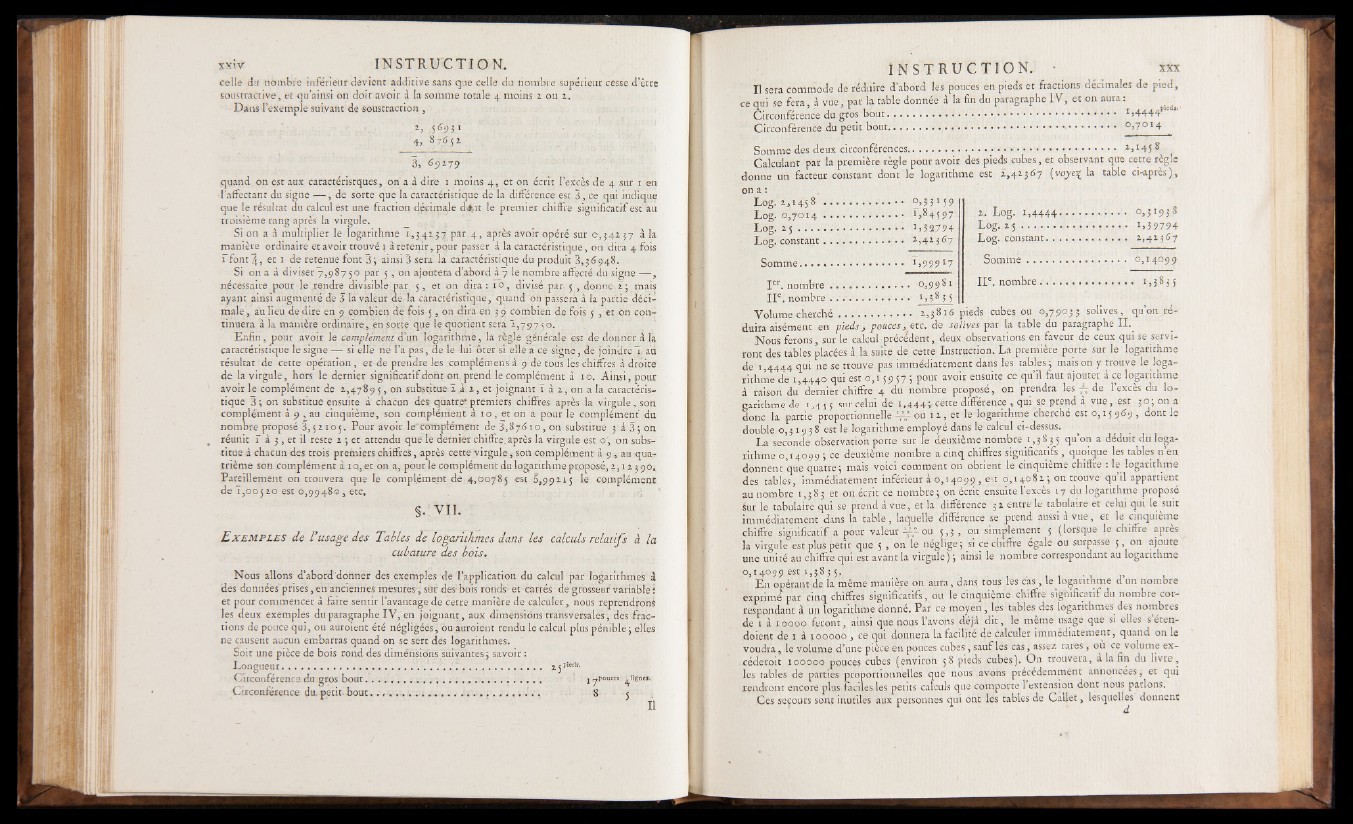 xxiv INSTRUCTION.
celle du nombre inférieur devient additive sans que celle du nombre supérieur cesse d'être
soustractive, et qu'ainsi on doit avoir à la somme totale 4 moins 2 ou 2.
Dans l'exemple suivant de soustraction,
2, 56931
4, 87652
3̄, 69279
quand on est aux caractéristiques, on a à dire 1 moins 4, et on écrit l'excès de 4 sur 1 en
l'affectant du signe —, de sorte que la caractéristique de la différence est 3̄, ce qui indique
que le résultat du calcul est une fraction décimale dont le premier chiffre significatif est au
troisième rang après la virgule.
Si on a à multiplier le logarithme 1̄,34237 par 4, après avoir opéré sur 0,34237 à la
manière ordinaire et avoir trouvé 1 à retenir, pour passer à la caractéristique, on dira 4 fois
1̄ font 4̄, et 1 de retenue font 3̄; ainsi 3̄ sera la caractéristique du produit 3̄,36948.
Si on a à diviser 7̄,98750 par 5, on ajoutera d'abord à 7̄ le nombre affecté du signe —,
nécessaire pour le rendre divisible par 5, et on dira : 10, divisé par 5, donne 2̄; mais
ayant ainsi augmenté de 3̄ la valeur de la caractéristique, quand on passera à la partie déci-
male, au lieu de dire en 9 combien de fois 5, on dira en 39 combien de fois 5, et on con-
tinuera à la manière ordinaire, en sorte que le quotient sera 2̄,79750.
Enfin, pour avoir le complément d'un logarithme, la règle générale est de donner à la
caractéristique le signe — si elle ne l'a pas, de le lui ôter si elle a ce signe, de joindre 1̄ au
résultat de cette opération, et de prendre les complémens à 9 de tous les chiffres à droite
de la virgule, hors le dernier significatif dont on prend le complément à 10. Ainsi, pour
avoir le complément de 2,47895, on substitue 2̄ à 2, et joignant 1̄ à 2̄, on a la caractéris-
tique 3̄; on substitue ensuite à chacun des quatre premiers chiffres après la virgule, son
complément à 9, au cinquième, son complément à 10, et on a pour le complément du
nombre proposé 3̄,52105. Pour avoir le complément de 3̄,87610, on substitue 3 à 3̄; on
réunit 1̄ à 3, et il reste 2; et attendu que le dernier chiffre après la virgule est 0, on subs-
titue à chacun des trois premiers chiffres, après cette virgule, son complément à 9, au qua-
trième son complément à 10, et on a, pour le complément du logarithme proposé, 2,12390.
Pareillement on trouvera que le complément de 4,00785 est 5̄,99215 le complément
de 1̄,00520 est 0,99480, etc.
§. VII.
EXEMPLES de l'usage des Tables de logarithmes dans les calculs relatifs à la
cubature des bois.
Nous allons d'abord donner des exemples de l'application du calcul par logarithmes à
des données prises, en anciennes mesures, sur des bois ronds et carrés de grosseur variable :
et pour commencer à faire sentir l'avantage de cette manière de calculer, nous reprendrons
les deux exemples du paragraphe IV, en joignant, aux dimensions transversales, des frac-
tions de pouce qui, ou auroient été négligées, ou auroient rendu le calcul plus pénible; elles
ne causent aucun embarras quand on se sert des logarithmes.
Soit une pièce de bois rond des dimensions suivantes; savoir :
Longueur . . . . . . . . . . 25 pieds.
Circonférence du gros bout . . . . . . . . . . 17 pouces 4 lignes.
Circonférence du petit bout . . . . . . . . . . 8 5
Il
INSTRUCTION. xxx
Il sera commode de réduire d'abord les pouces en pieds et fractions décimales de pied,
ce qui se fera, à vue, par la table donnée à la fin du paragraphe IV, et on aura :
Circonférence du gros bout . . . . . . . . . . 1,4444 pieds.
Circonférence du petit bout . . . . . . . . . . 0,7014
Somme des deux circonférences . . . . . . . . . . 2,1458
Calculant par la première règle pour avoir des pieds cubes, et observant que cette règle
donne un facteur constant dont le logarithme est 2̄,42367 (voyez la table ci-après),
on a :
Log. 2,1458 . . . . . 0,33159
Log. 0,7014 . . . . . 1̄,84597
Log. 25 . . . . . 1,39794
Log. constant . . . . . 2̄,42367
Somme . . . . . 1̄,99917
Ier. nombre . . . . . 0,9981
IIe. nombre . . . . . 1,3835
2. Log. 1,4444 . . . . . 0,31938
Log. 25 . . . . . 1,39794
Log. constant . . . . . 2̄,42367
Somme . . . . . 0,14099
IIe. nombre . . . . . 1,3835
Volume cherché . . . . . 2,3816 pieds cubes ou 0,79033 solives, qu'on ré-
duira aisément en pieds, pouces, etc. de solives par la table du paragraphe II.
Nous ferons, sur le calcul précédent, deux observations en faveur de ceux qui se servi-
ront des tables placées à la suite de cette Instruction. La première porte sur le logarithme
de 1,4444 qui ne se trouve pas immédiatement dans les tables; mais on y trouve le loga-
rithme de 1,4440 qui est 0,15957; pour avoir ensuite ce qu'il faut ajouter à ce logarithme
à raison du dernier chiffre 4 du nombre proposé, on prendra les 4/10 de l'excès du lo-
garithme de 1,445 sur celui de 1,444; cette différence, qui se prend à vue, est 30; on a
donc la partie proportionnelle 120/10 ou 12, et le logarithme cherché est 0,15969, dont le
double 0,31938 est le logarithme employé dans le calcul ci-dessus.
La seconde observation porte sur le deuxième nombre 1,3835 qu'on a déduit du loga-
rithme 0,14099; ce deuxième nombre a cinq chiffres significatifs, quoique les tables n'en
donnent que quatre; mais voici comment on obtient le cinquième chiffre : le logarithme
des tables, immédiatement inférieur à 0,14099, est 0,14082; on trouve qu'il appartient
au nombre 1,383 et on écrit ce nombre; on écrit ensuite l'excès 17 du logarithme proposé
sur le tabulaire qui se prend à vue, et la différence 32 entre le tabulaire et celui qui le suit
immédiatement dans la table, laquelle différence se prend aussi à vue, et le cinquième
chiffre significatif a pour valeur 170/32 ou 5,3, ou simplement 5 (lorsque le chiffre après
la virgule est plus petit que 5, on le néglige; si ce chiffre égale ou surpasse 5, on ajoute
une unité au chiffre qui est avant la virgule); ainsi le nombre correspondant au logarithme
0,14099 est 1,3835.
En opérant de la même manière on aura, dans tous les cas, le logarithme d'un nombre
exprimé par cinq chiffres significatifs, ou le cinquième chiffre significatif du nombre cor-
respondant à un logarithme donné. Par ce moyen, les tables des logarithmes des nombres
de 1 à 10000 feront, ainsi que nous l'avons déjà dit, le même usage que si elles s'éten-
doient de 1 à 100000, ce qui donnera la facilité de calculer immédiatement, quand on le
voudra, le volume d'une pièce en pouces cubes, sauf les cas, assez rares, où ce volume ex-
céderoit 100000 pouces cubes (environ 58 pieds cubes). On trouvera, à la fin du livre,
les tables de parties proportionnelles que nous avons précédemment annoncées, et qui
rendront encore plus faciles les petits calculs que comporte l'extension dont nous parlons.
Ces secours sont inutiles aux personnes qui ont les tables de Callet, lesquelles donnent
d